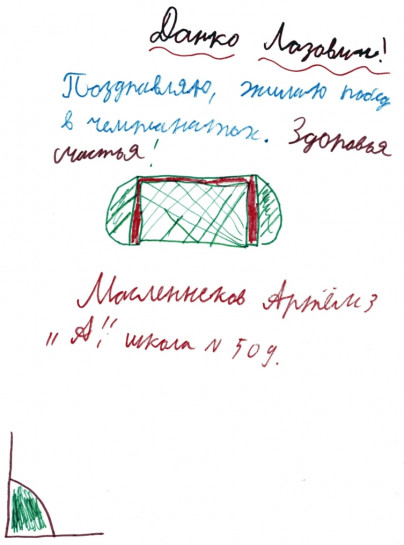 Данко Лазович!
Поздравляю, жилаю побед
в чемпианатах. Здоровья
счастья!
Масленников Артём 3
„А“, школа № 509.